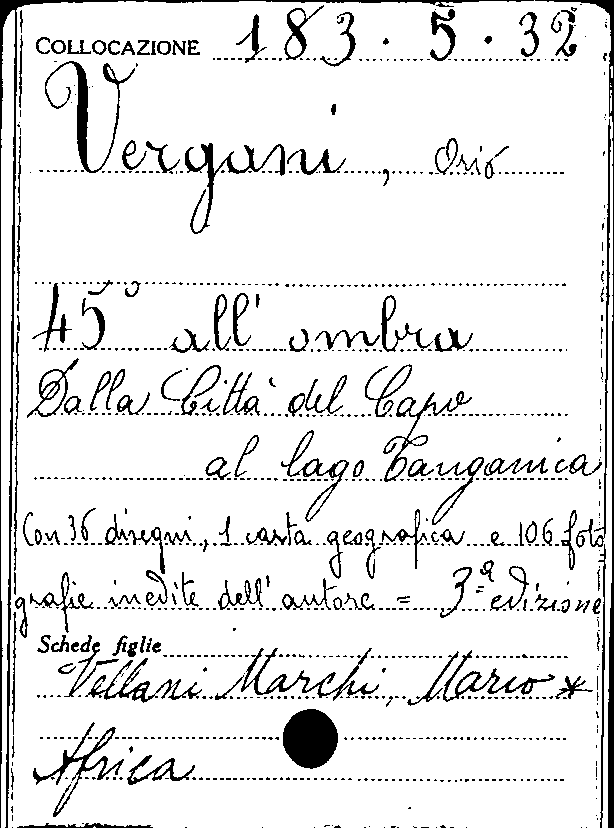 COLLOCAZIONE 183.5.32
Vergani, Orio
45° all' ombra
Dalla Città del Capo
al lago Tanganica
Con 36 disegni, 1 carta geografica e 106 foto=
grafie inedite dell'autore = 3ª edizione
Schede figlie
Vellani Marchi, Mario *
Africa